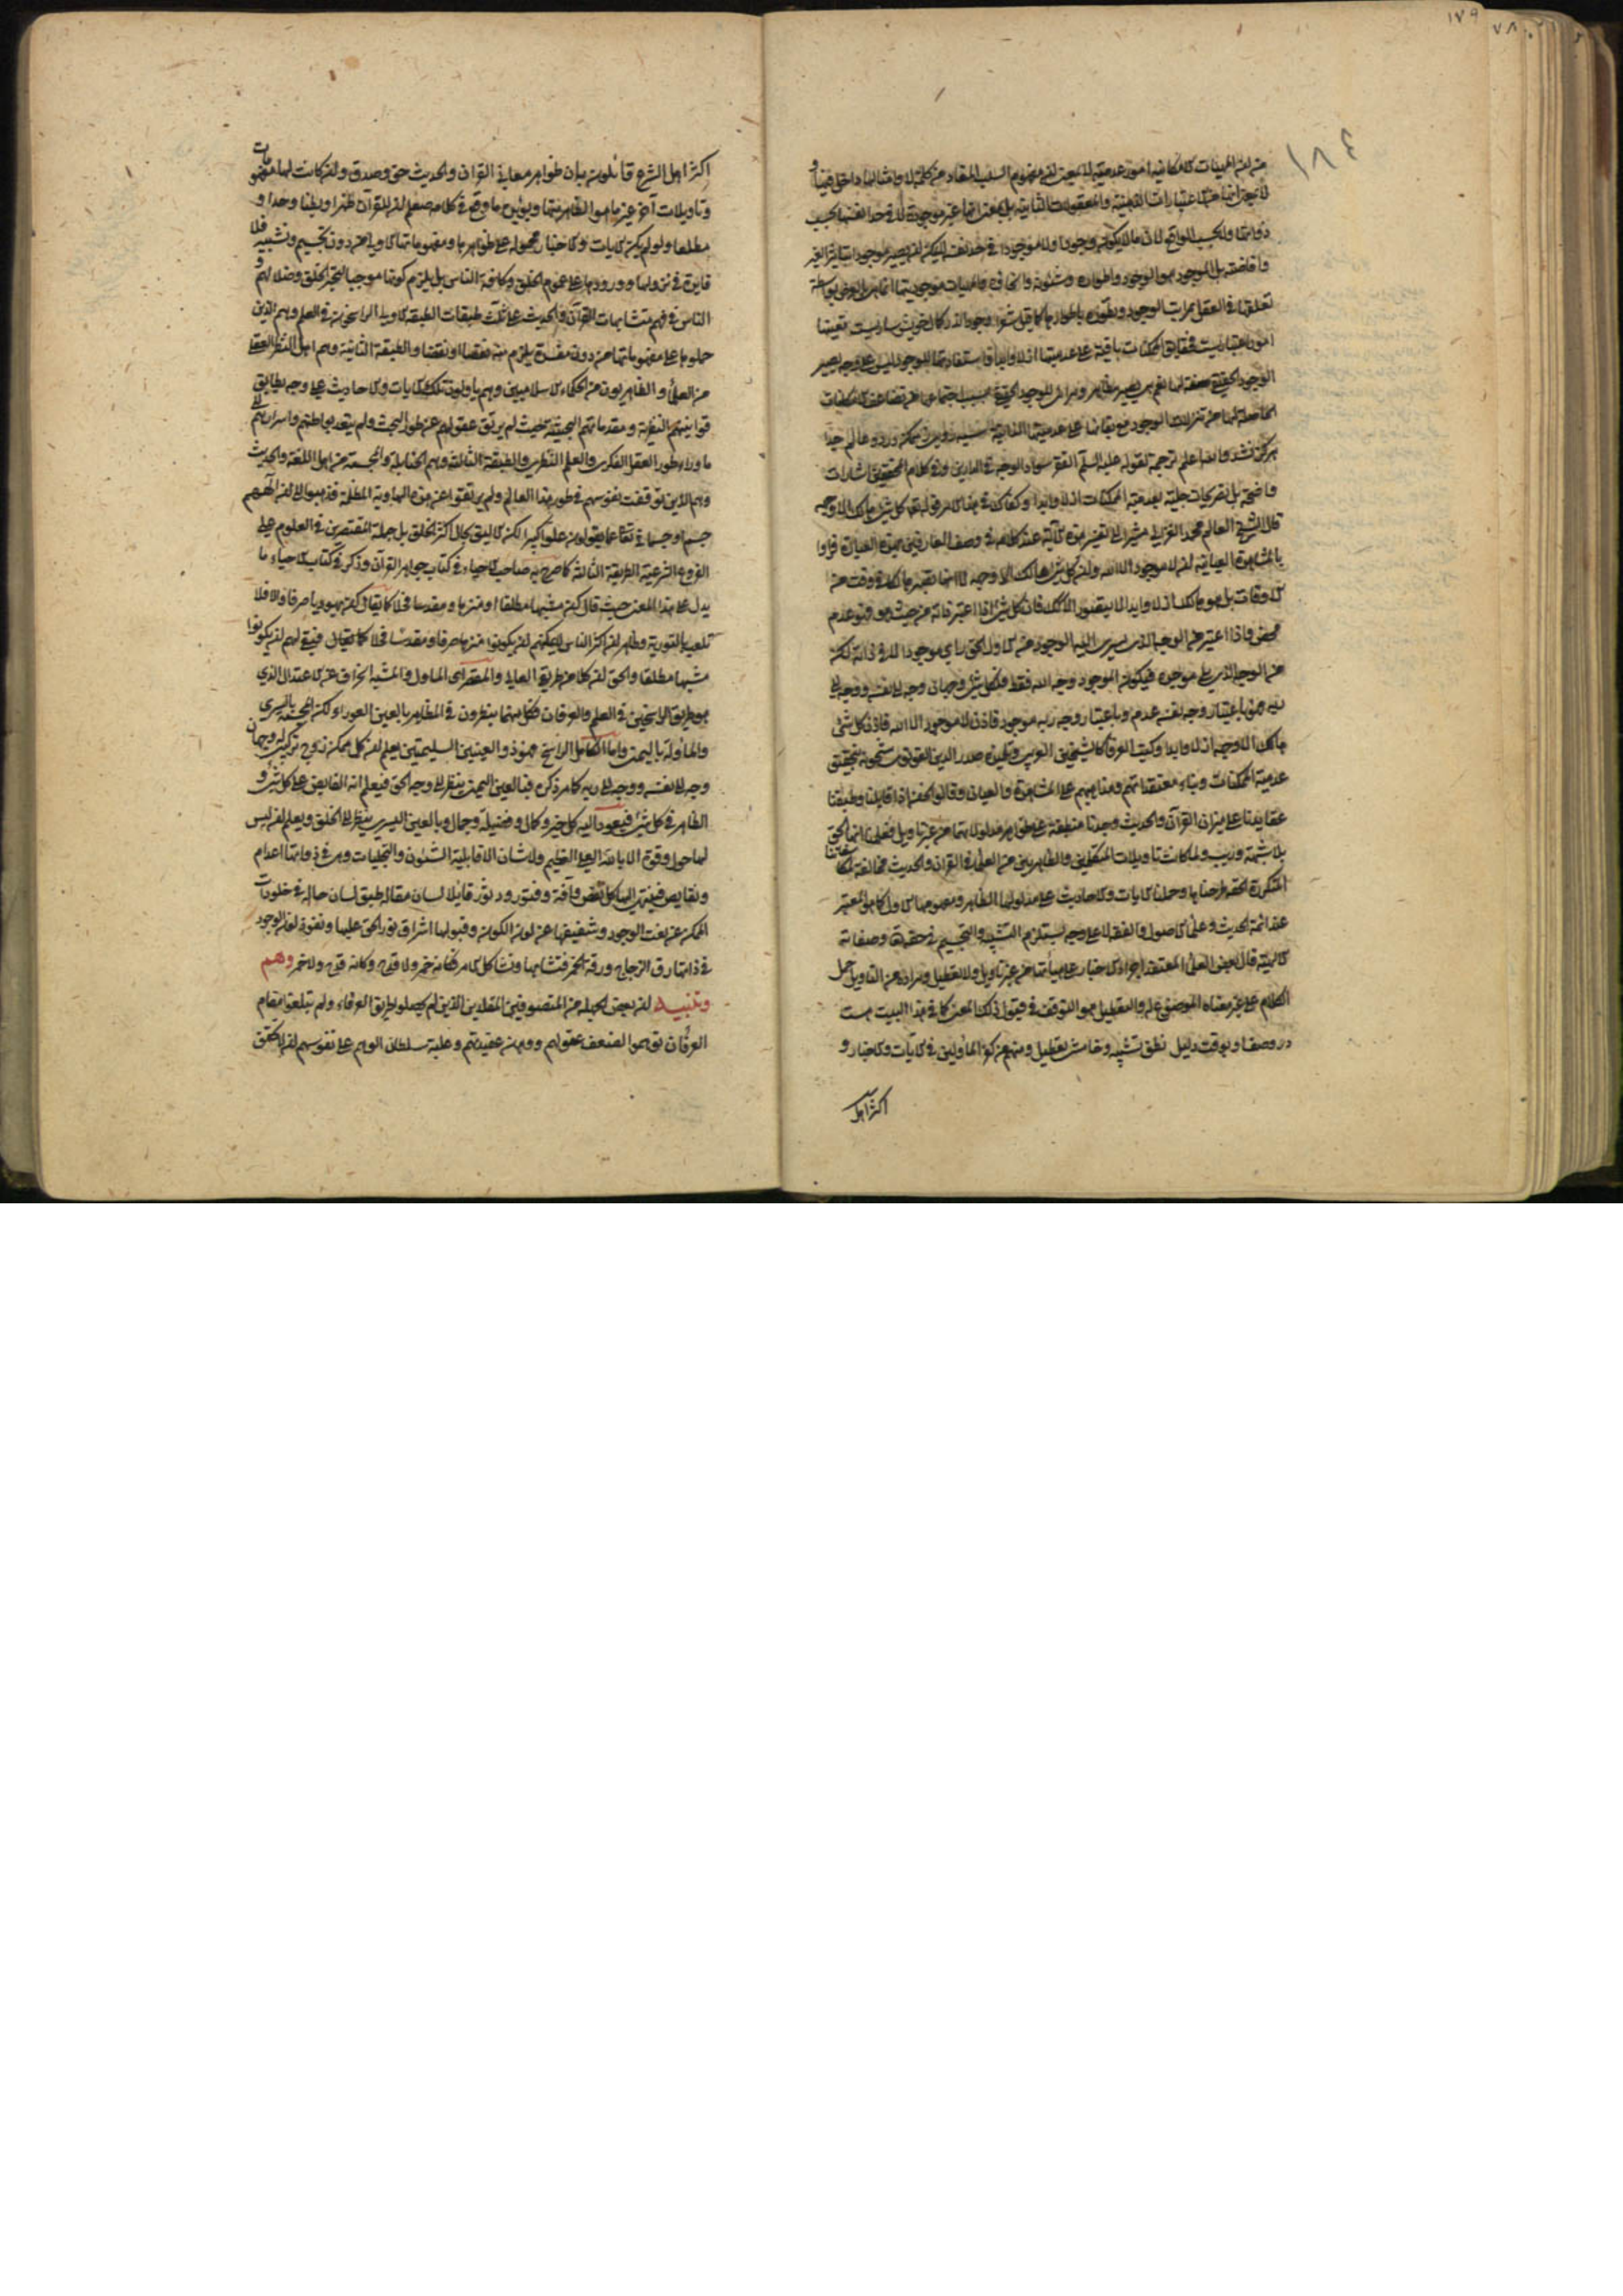 ١٧٩
١٨٤
من ان الماهيات الامكانية امور عدمية لا بمعنى ان مفهوم السلب المفاد من كلمة لا وامثالها داخل فيها و
لا بمعنى انها من الاعتبارات الذهنية والمعقولات الثانية بل بمعنى انها غير موجودة لا في حد انفسها بحسب
ذواتها ولا بحسب الواقع لان ما لا يكون وجودا ولا موجودا في حد نفسه لا يمكن ان يصير موجودا بتاثير الغير
وافاضته بل الموجود هو الوجود واطواره وشئونه وانحاؤه والماهيات موجوديتها انما هي بالعرض بواسطة
تعلقها في العقل بمراتب الوجود وتطوره باطوارها كما قيل شعرا وجود اندر كمال خويش ساريست تعينها
امور اعتباريست فحقايق الممكنات باقية على عدميتها ازلا وابدا واستفادتها للوجود ليس على وجه يصير
الوجود الحقيقي صفة لها نعم هي يصير مظاهر ومرائي للوجود الحقيقي بسبب اجتماعها من تضاعيف الامكانات
الحاصلة لها من تنزلات الوجود مع بقائها على عدميتها الذاتية سيه رويي ز ممكن در دو عالم جدا
هركز نشد والله اعلم ترجمة لقوله عليه السلم الفقر سواد الوجه في الدارين وفي كلام المحققين اشارات
واضحة بل تصريحات جلية بعدمية الممكنات ازلا وابدا وكفاك في هذا الامر قوله تعالى كل شيء هالك الا وجهه
قال الشيخ العالم محمد الغزالي مشيرا الى تفسير هذه الاية عند كلامه في وصف العارفين بهذه العبارة فراوا
بالمشاهدة العيانية ان لا موجود الا الله وان كل شيء هالك الا وجهه لا انه يصير هالكا في وقت من
الاوقات بل هو هالك ازلا وابدا لا يتصور الا كذلك فان كل شيء اذا اعتبر ذاته من حيث هو فهو عدم
محض واذا اعتبر من الوجه الذي يسري اليه الوجود من الاول الحق راي موجودا لا في ذاته لكن
من الوجه الذي يلي موجده فيكون الموجود وجه الله فقط فلكل شيء وجهان وجه الى نفسه ووجه الى
ربه فهو باعتبار وجه نفسه عدم وباعتبار وجه ربه موجود فاذن لا موجود الا الله فاذن كل شيء
هالك الا وجهه ازلا وابدا وكتب العرفا كالشيخين العربي وتلميذه صدر الدين القونوي مشحونة بتحقيق
عدمية الممكنات وبناء معتقداتهم ومذاهبهم على المشاهدة والعيان وقالوا نحن اذا قابلنا وطبقنا
عقايدنا على ميزان القرآن والحديث وجدنا منطبقة على ظواهر مدلولاتهما من غير تاويل فعلمنا انها الحق
بلا شبهة وريب ولما كانت تاويلات المتكلمين والظاهريين من العلما في القرآن والحديث مخالفة لمكاشفاتنا
المتكررة الحقة طرحناها وحملنا الايات والاحاديث على مدلولها الظاهر ومفهومها الاول كما هو المعتبر
عند ائمة الحديث وعلماء الاصول والفقه لا على وجه يستلزم التشبيه والتجسيم في حقه تعالى وصفاته
الالهية قال بعض العلماء المعتقد اجراء الاخبار على هيأتها من غير تاويل ولا تعطيل ومراده من التاويل حمل
الكلام على غير معناه الموضوع له والتعطيل هو التوقف في قبول ذلك المعنى كما في هذا البيت هست
در وصف او بوقت دليل نطق تشبيه وخامشي تعطيل ومنهم من كفر المأولين في الايات والاخبار و
اكثر اهل
اكثر اهل الشرع قائلون بان ظواهر معاني القرآن والحديث حق وصدق وان كانت لها مفهومات
وتاويلات آخر غير ما هو الظاهر منها ويؤيده ما وقع في كلامه صلعم ان للقرآن ظهرا وبطنا وحدا و
مطلعا ولو لم يكن الايات والاخبار محمولة على ظواهرها ومفهوماتها الاولى من دون تجسيم وتشبيه فلا
فايدة في نزولها وورودها على عموم الخلق وكافة الناس بل يلزم كونها موجبا لتحير الخلق وضلالهم و
الناس في فهم متشابهات القرآن والحديث على ثلث طبقات الطبقة الاولى الراسخون في العلم وهم الذين
حملوها على مفهوماتها من دون مفسدة يلزم منه نقصا او نقضا والطبقة الثانية وهم اهل النظر العقلي
من العلماء والظاهريون من الحكماء الاسلاميين وهم ياولون تلك الايات والاحاديث على وجه يطابق
قوانينهم النظرية ومقدماتهم البحثية حيث لم يرتق عقولهم عن طور البحث ولم يتعد بواطنهم واسرارهم الى
ما وراء طور العقل الفكري والعلم النظري والطبقة الثالثة وهم الحنابلة والمجسمة من اهل اللغة والحديث
وهم الذين توقفت نفوسهم في طور هذا العالم ولم يرتقوا عن هذه الهاوية المظلمة فذهبوا الى ان الههم
جسم او جسماني تعالى عما يقولون علوا كبيرا لكن الاليق بحال اكثر الخلق بل جملة المقتصرين في العلوم على
الفروع الشرعية الطريقة الثالثة كما صرح به صاحب الاحياء في كتاب جواهر القرآن وذكر في كتاب الاحياء ما
يدل على هذا المعنى حيث قال كن مشبها مطلقا او منزها ومقدسا فحلا كما يقال كن يهوديا صرفا والا فلا
تلعب بالتورية وظاهر ان اكثر الناس لا يمكنهم ان يكونوا منزها صرفا ومقدسا فحلا كما يقال فبقي لهم ان يكونوا
مشبها مطلقا والحق ان كلا من طريق الغالي والمقصر اي الماول والمشبه انحراف عن الاعتدال الذي
هو طريق الراسخين في العلم والعرفان فكل منهما ينظرون في المظاهر بالعين العوراء لكن المجسمة باليسرى
والماولة باليمنى واما الكامل الراسخ فهو ذو العينين السليمتين يعلم ان كل ممكن زوج تركيبي له وجهان
وجه الى نفسه ووجه الى ربه كما مر ذكره فبالعين اليمنى ينظر الى وجه الحق فيعلم انه الفايض على كل شيء و
الظاهر في كل شيء فيعود اليه كل خير وكمال وفضيلة وجمال وبالعين اليسرى ينظر الى الخلق ويعلم ان ليس
لها حول ولا قوة الا بالله العلي العظيم ولا شان الا قابلية الشئون والتجليات وهي في ذواتها اعدام
ونقايص فينتهي اليها كل نقص وآفة وفتور ودثور قايلا لسان مقاله طبق لسان حاله في خلو ذات
الممكن عن نعت الوجود وشفيفها عن لون الكون وقبولها اشراق نور الحق عليها ونفوذ لون الوجود
في ذاتها رق الزجاج ورقت الخمر فتشابها وتشاكل الامر فكانه خمر ولا قدح وكانه قدح ولا خمر وهم
وتنبيه ان بعض الجهلة من المتصوفين المقلدين الذين لم يحصلوا طريق العرفاء ولم يبلغوا مقام
العرفان توهموا لضعف عقولهم ووهن عقيدتهم وغلبة سلطان الوهم على نفوسهم ان لا تحقق